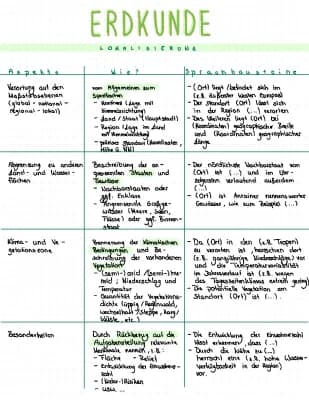 ERDKUNDE
LOKALISIERUNG
Aspekte
Wie?
Sprachbausteine
Verortung auf den
Maßstabsebenen
(global - national -
regional - lokal)
vom Allgemeinen zum
Spezifischen
- Kontinent (Lage mit
Himmelsrichtung)
- Land / Staat (Hauptstadt)
- Region (Lage im Land
mit Himmelsrichtung)
- genauer Standort (Koordinaten,
Höhe ü. NN)
- (Ort) liegt / befindet sich im
(z.B. äußersten Westen Europas)
- Der Standort (Ort) lässt sich
in der Region (...) verorten
- Des Weiteren liegt (Ort) bei
(Koordinaten) geografischer Breite
und (Koordinaten) geografischer
Länge
Abgrenzung zu anderen
Land- und Wasser-
flächen
Beschreibung der an-
grenzenden Staaten und
Gewässer
- Nachbarstaaten oder
ggf. Enklave
- Angrenzende Großge-
wässer (Meere, Seen,
Flüsse) oder ggf. Binnen-
staat
- Der nördlichste Nachbarstaat von
(Ort) ist (...) und im Uhr-
zeigersinn verlaufend außerdem
(...)
- (Ort) ist Anrainer nennenswerter
Gewässer, wie zum Beispiel (...)
Klima- und Ve-
getationszone
Benennung der klimatischen
Bedingungen und Be-
schreibung der vorhandenen
Vegetation
- (semi-)arid / (semi-)hu-
mid ; Niederschlag und
Temperatur
- Quantität der Vegetations-
dichte (üppig / Regenwald,
wechselhaft / Steppe, karg /
Wüste, etc.)
- Da (Ort) in den (z.B. Tropen)
zu verorten ist, herrschen dort
(z.B. ganzjährige Niederschläge) vor
und die Temperaturvariabilität
im Jahresverlauf ist (z.B. wegen
des Tageszeitenklimas extrem gering)
- Die potentielle Vegetation am
Standort (Ort) ist (...).
Besonderheiten
Durch Rückbezug auf die
Aufgabenstellung relevante
Merkmale nennen, z.B.:
- Fläche - Relief
- Entwicklung der Einwohner-
zahl
- (Natur-)Risiken
- usw ...
- Die Entwicklung der Einwohnerzahl
lässt erkennen, dass (...)
- Durch die Nähe zu (...)
herrscht eine (z.B. hohe Wasser-
verfügbarkeit in der Region)
vor.